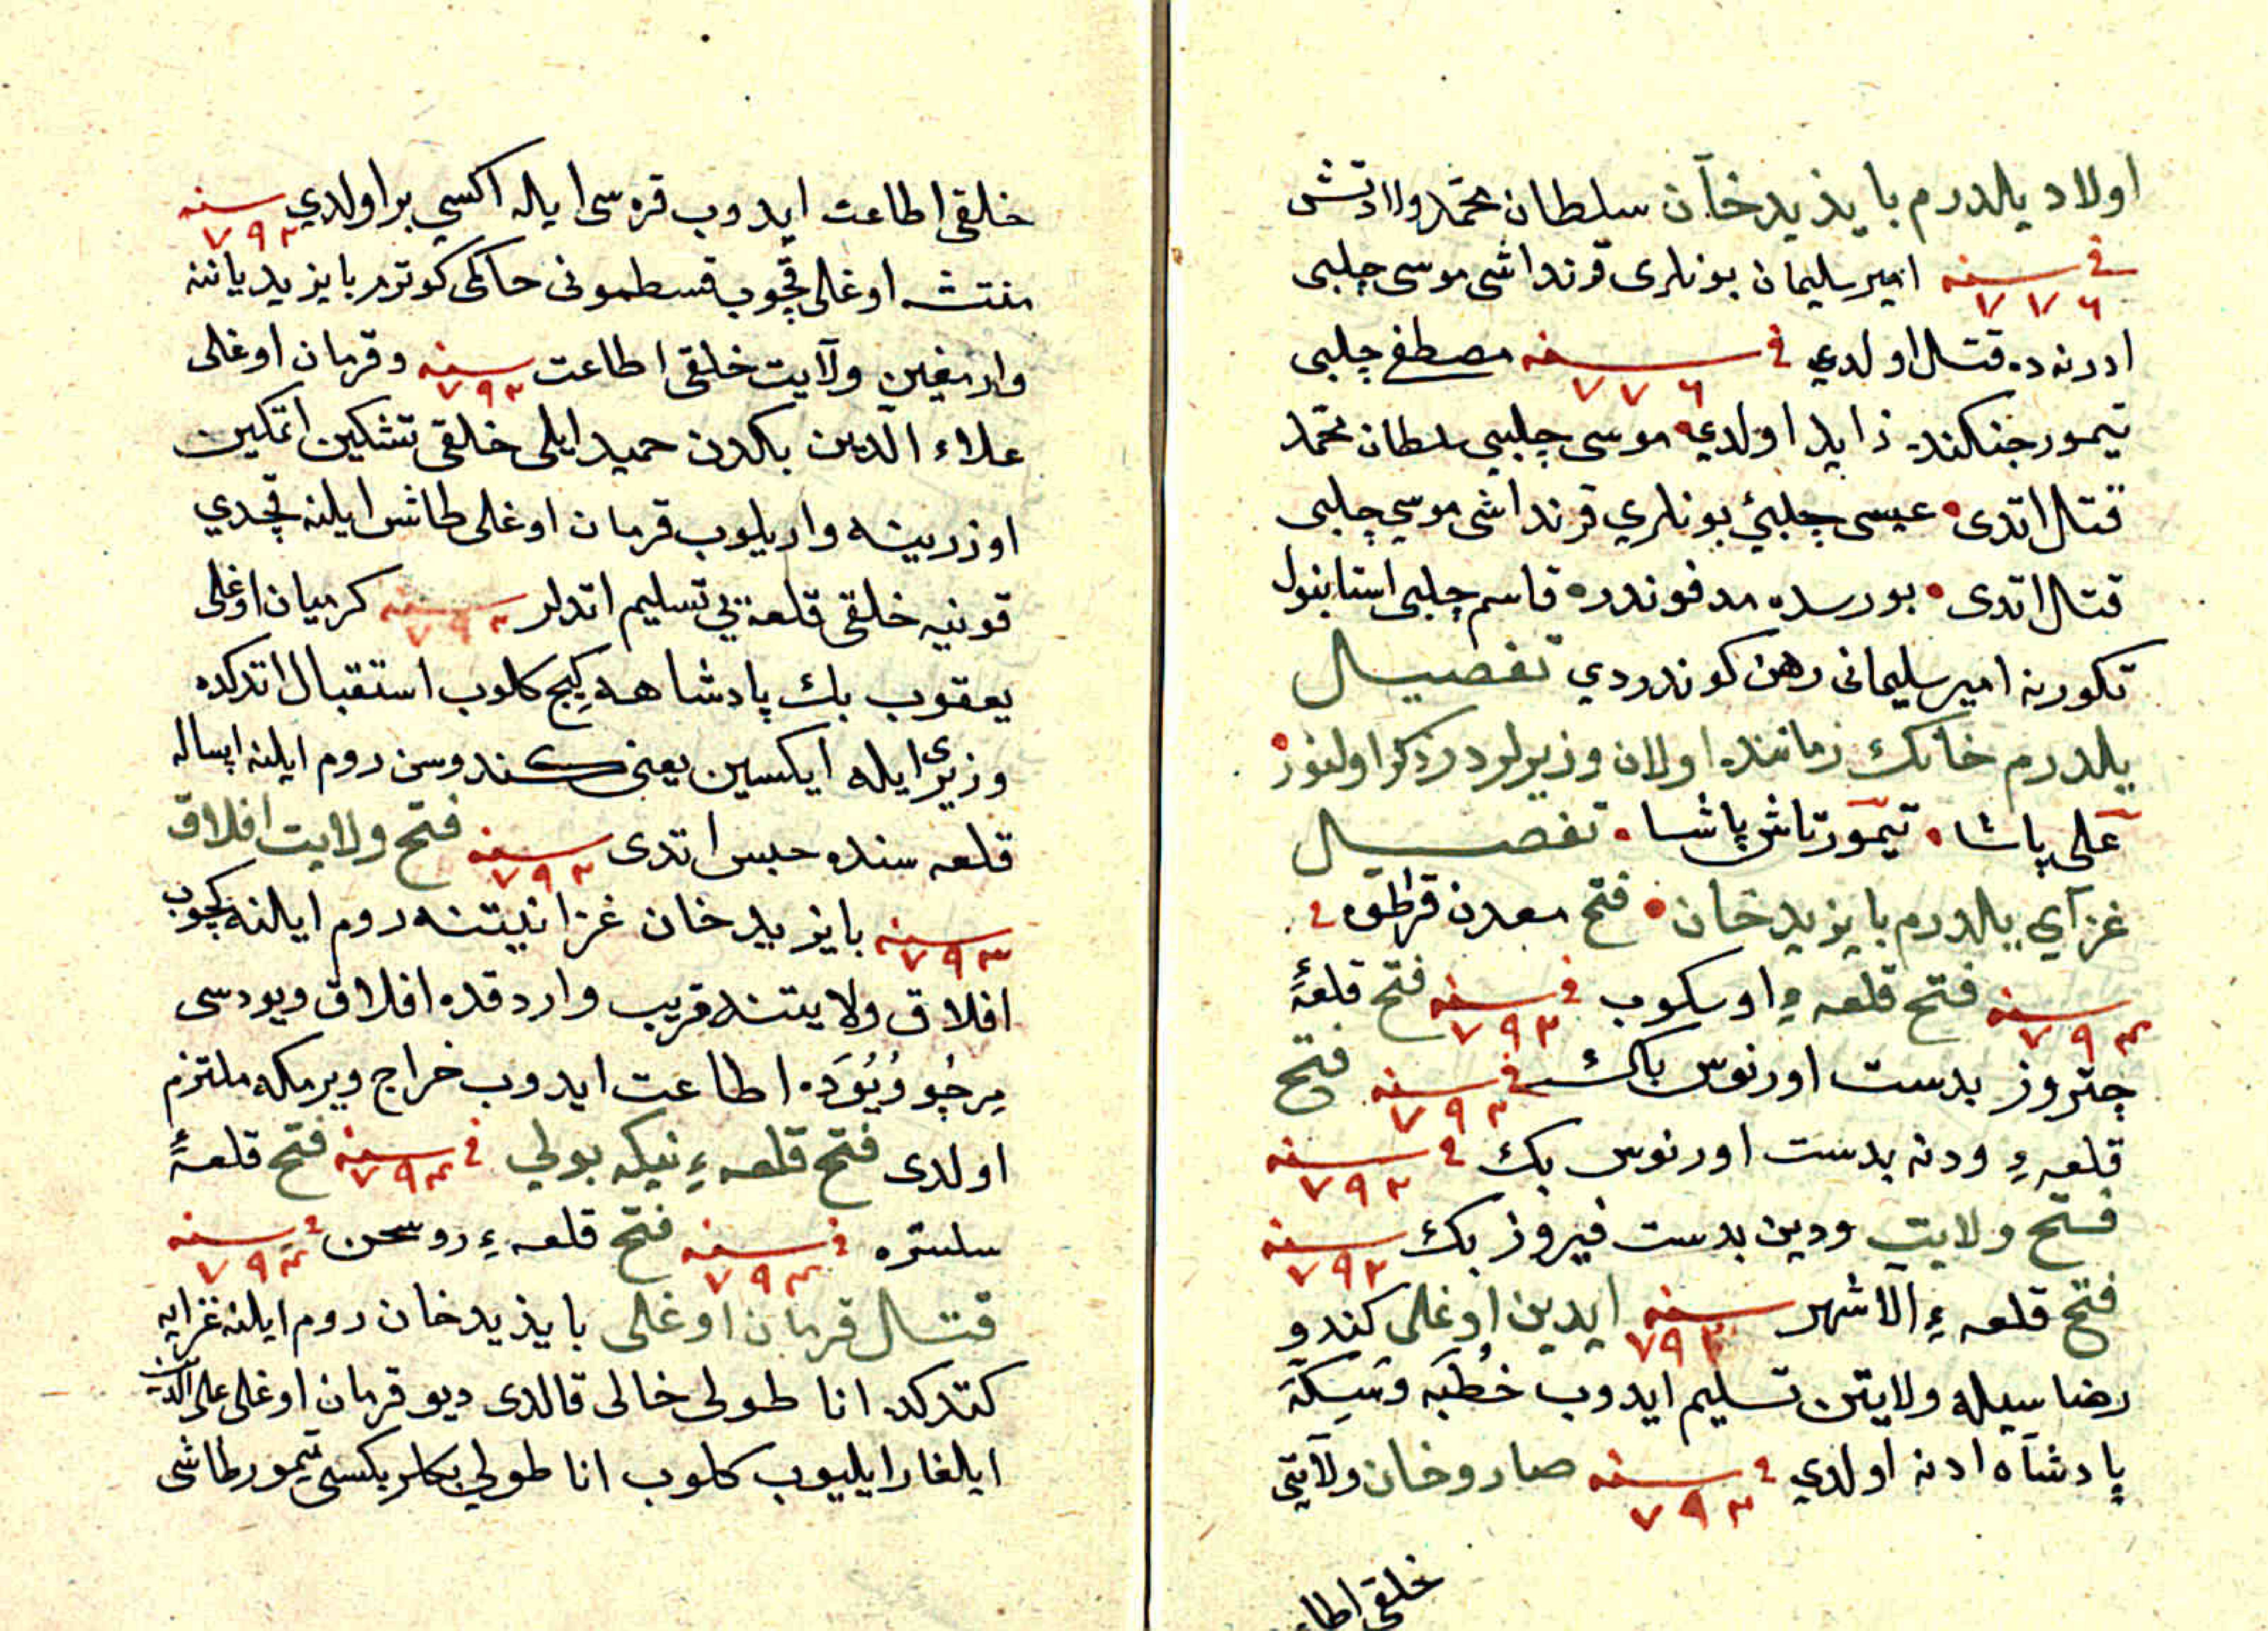 اولاد يلدرم بايذيد خآن سلطان محمّد ولادتش
فى سنه ٧٧٦ امير سليمان بونلرى قرنداشى موسى چلبى
ادرنه ده قتال اولدي فى سنه ٧٧٦ مصطفى چلبى
تيمور جنكنده زايد اولدي موسى چلبيى سلطان محمّد
قتال اتدى عيسى چلبئ بونلري قرنداشى موسي چلبى
قتال اتدى بورسده مدفوندر قاسم چلبى استانبول
تكورنه امير سليمانى رهن كوندردي تفصيال
يلدرم خانك زماننده اولان وزيرلردر ذكر اولنور
على پاشا تيمورتاش پاشا تفصيال
غزآي يلدرم بايزيد خان فتح معدن قرطوه فى
سنه ٧٩٢ فتح قلعهء اوسكوب فى سنه ٧٩٢ فتح قلعهٔ
چتروز بدست اورنوس بك فى سنه ٧٩٢ فتح
قلعهء ودنه بدست اورنوس بك فى سنه ٧٩٢
فتح ولايت ودين بدست فيروز بك سنه ٧٩٢
فتح قلعهء الاشهر سنه ٧٩٢ ايدين اوغلى كندو
رضا سيله ولايتن تسليم ايدوب خُطبَه وسَكِة
پادشآه ادنه اولدي فى سنه ٧٩٢ صاروخان ولآيتى
خلقى اطا
خلقى اطاعت ايدوب قره سى ايله اكسي بر اولدي سنه ٧٩٢
منتشه اوغلى قچوب قسطمونى حاكمى كوترم بايزيد ياننه
وارمغين ولآيت خلقى اطاعت سنه ٧٩٢ وقرمان اوغلى
علاء الدّين بكدن حميد ايلى خلقى تشكين اتمكين
اوزرينه واريلوب قرمان اوغلى طاش ايلنه قچدي
قونيه خلقى قلعه يى تسليم اتدلر سنه ٧٩٢ كرميان اوغلى
يعقوب بك پادشاهه كيج كلوب استقبال اتدكده
وزيرى ايله ايكسين يعنى كندوسن روم ايلنه اپساله
قلعه سنده حبس اتدى سنه ٧٩٢ فتح ولايت افلاق
سنه ٧٩٣ بايزيد خان غزا نيتنه روم ايلنه كچوب
افلاق ولايتنه قريب واردقده افلاق ويودسى
مِرچُو وُيُوَده اطاعت ايدوب خراج ويرمكه ملتزم
اولدى فتح قلعهء نيكه بولي فى سنه ٧٩٣ فتح قلعهٔ
سلستره فى سنه ٧٩٣ فتح قلعهء روسحن فى سنه ٧٩٣
قتال قرمان اوغلى بايذيد خان روم ايلنه غزايه
كتدكده اناطولى خالى قالدى ديو قرمان اوغلى على الدين
ايلغار ايليوب كلوب اناطولي بكلربكسى تيمورطاشى